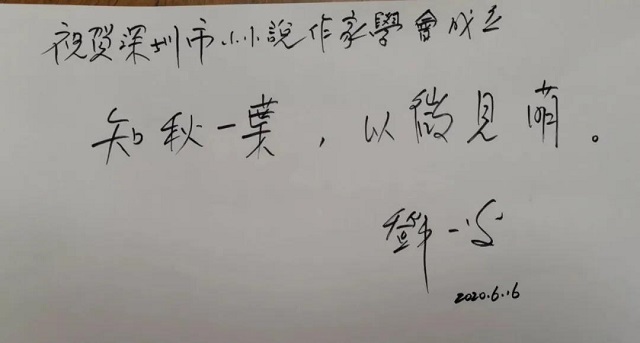 祝贺深圳市小小說作家學會成立
知秋一葉，以微見萌。
鄧一光
2020.6.16